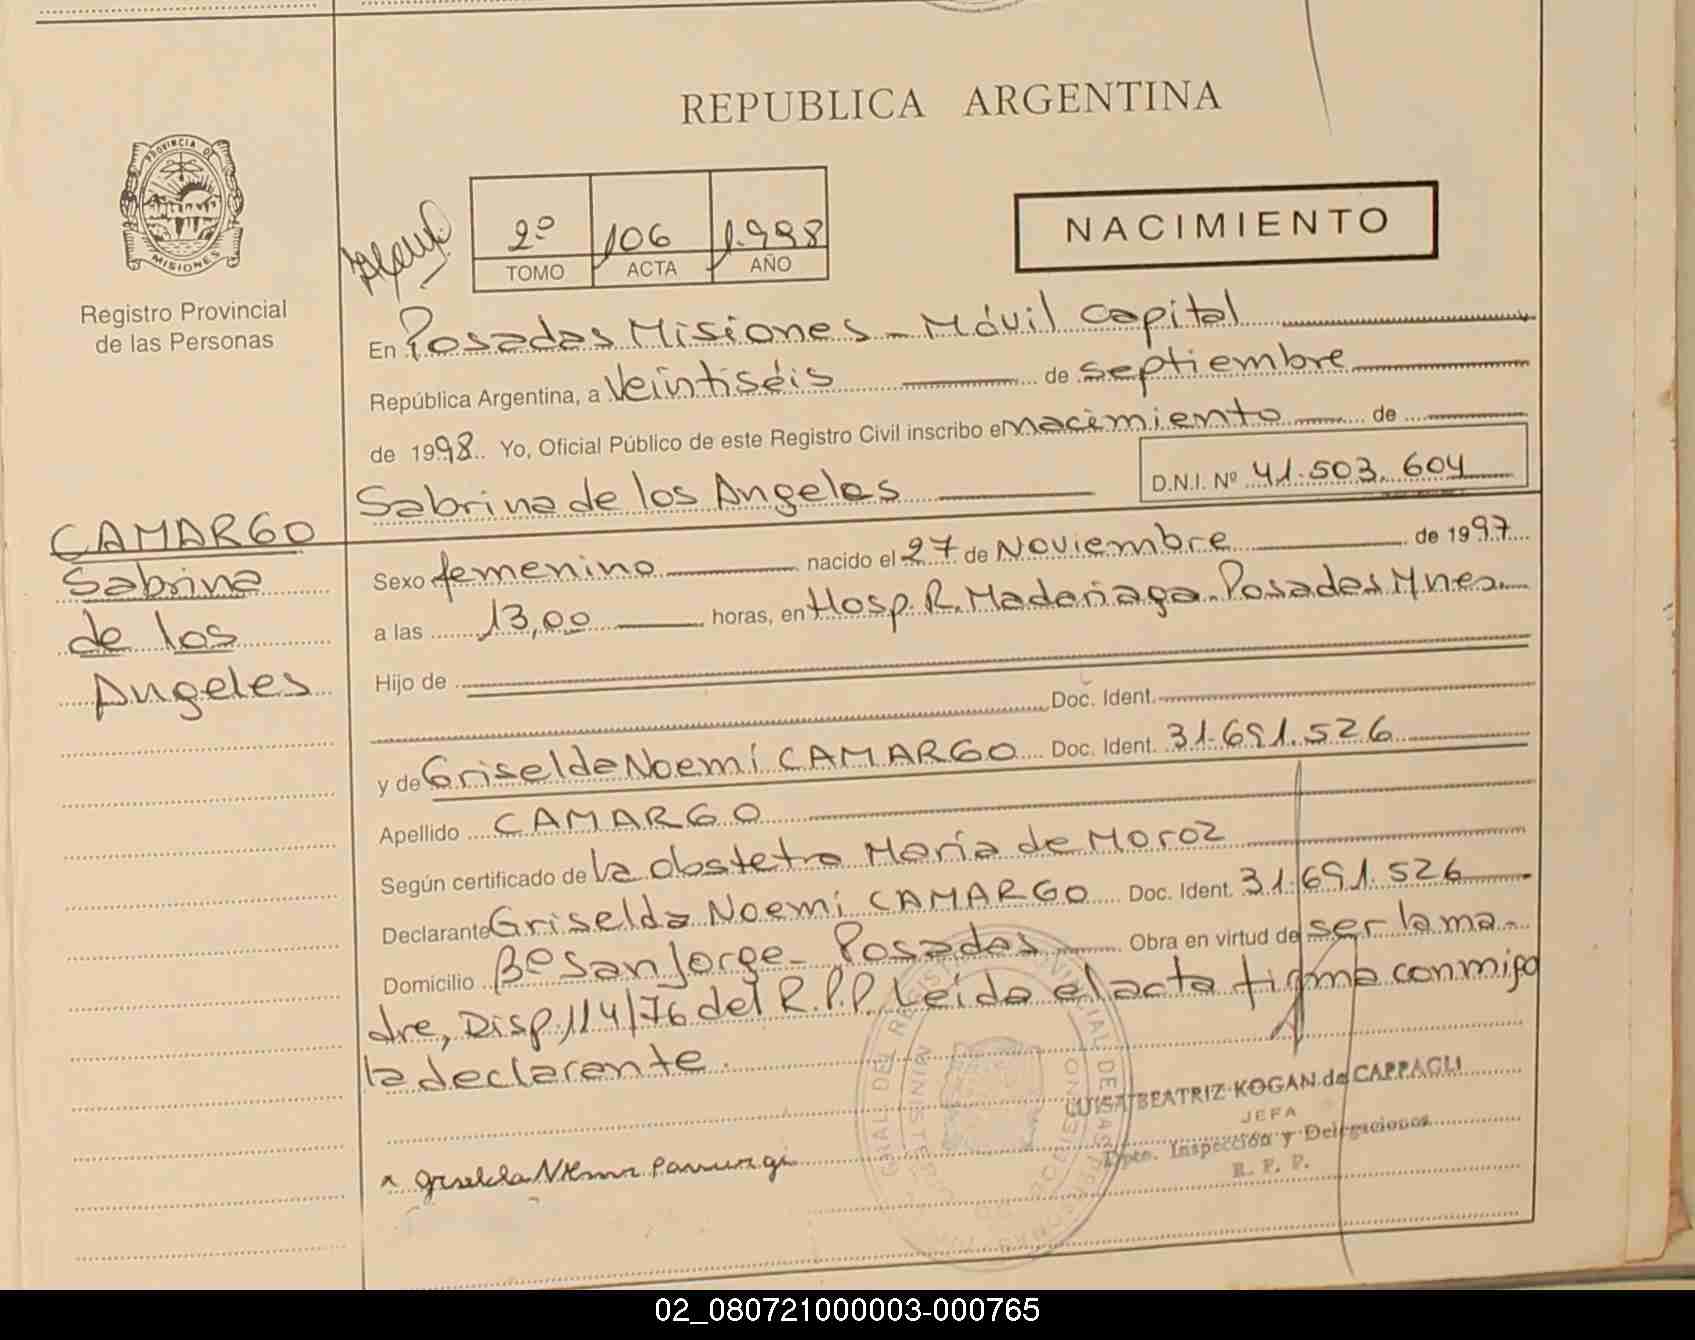 REPUBLICA ARGENTINA
PROVINCIA DE
MISIONES
Registro Provincial
de las Personas
2º 106 1.998
TOMO ACTA AÑO
NACIMIENTO
En Posadas Misiones - Móvil Capital
República Argentina, a Veintiséis de septiembre
de 1998. Yo, Oficial Público de este Registro Civil inscribo el nacimiento de
Sabrina de los Angeles D.N.I. Nº 41.503.604
CAMARGO
Sabrina
de los
Angeles
Sexo femenino nacido el 27 de Noviembre de 1997
a las 13,00 horas, en Hosp. R. Madariaga. Posadas Mnes.
Hijo de
Doc. Ident.
y de Griselda Noemí CAMARGO Doc. Ident. 31.691.526
Apellido CAMARGO
Según certificado de la obstetra María de Moroz
Declarante Griselda Noemí CAMARGO Doc. Ident. 31.691.526
Domicilio Bº San Jorge - Posadas Obra en virtud de ser la ma-
dre, Disp. 114/76 del R.P.P. Leída el acta firma conmigo
la declarante.
LUISA BEATRIZ KOGAN de CAPPAGLI
JEFA
Dpto. Inspección y Delegaciones
R. P. P.
02_080721000003-000765